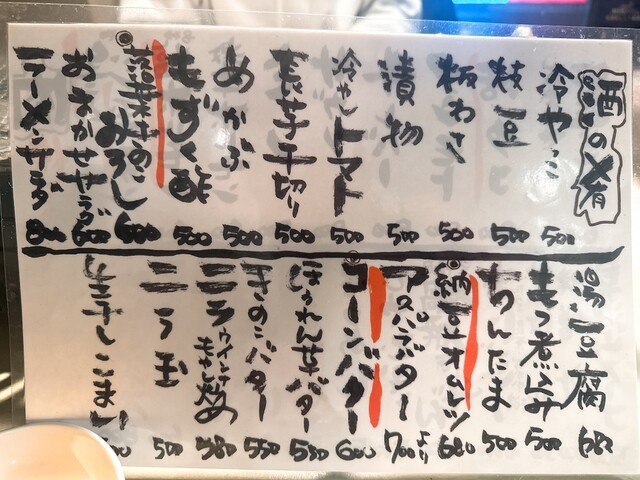 酒の肴
冷やっこ 500
枝豆 500
板わさ 500
漬物 500
冷やしトマト 500
長芋千切り 500
めかぶ 500
もずく酢 500
落葉きのこみぞれ 600
おまかせサラダ 600
ラーメンサラダ 800
湯豆腐 680
もつ煮込み 500
ちんたま 500
納豆オムレツ 680
アスパラバター 700より
コーンバター 600
ほうれん草バター 550
きのこバター 550
ニラウインナーキャベツ炒め 580
ニラ玉 500
生干しこまい